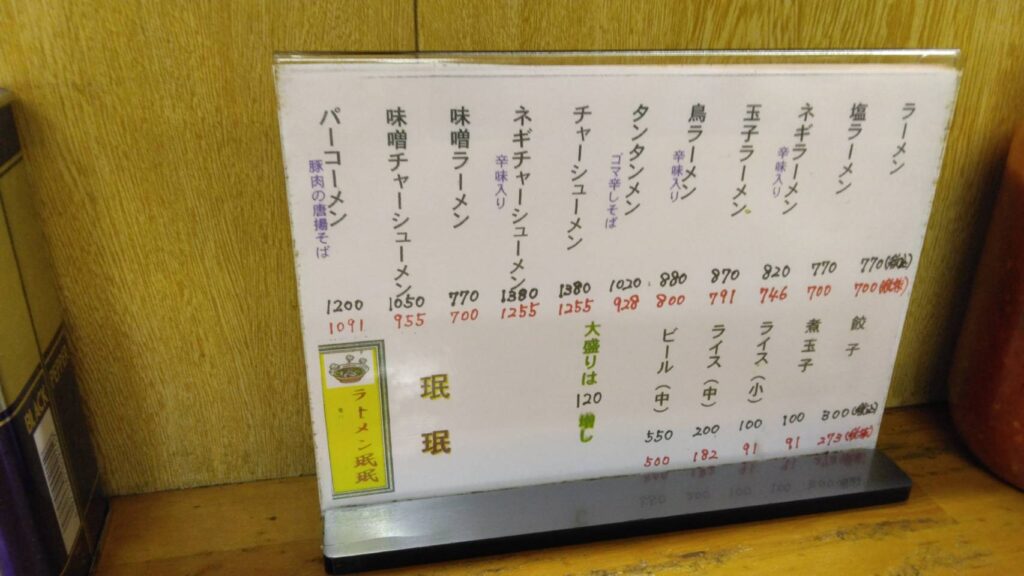 ラーメン
770(税込)
700(税抜)
塩ラーメン
770
700
ネギラーメン
辛味入り
820
746
玉子ラーメン
870
791
鳥ラーメン
辛味入り
880
800
タンタンメン
ゴマ辛しそば
1020
928
チャーシューメン
1380
1255
ネギチャーシューメン
辛味入り
1380
1255
味噌ラーメン
770
700
味噌チャーシューメン
1050
955
パーコーメン
豚肉の唐揚そば
1200
1091
餃子
300(税込)
273(税抜)
煮玉子
100
91
ライス(小)
100
91
ライス(中)
200
182
ビール(中)
550
500
大盛りは120増し
珉珉
ラーメン珉珉
BLACK